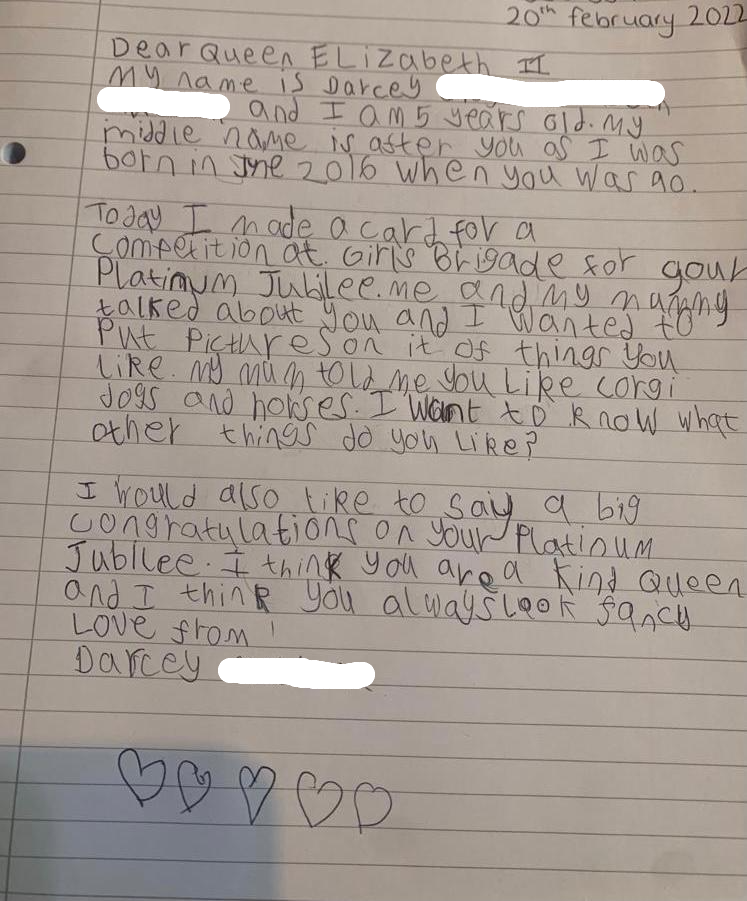 20th february 2022
Dear Queen ELizabeth II
My name is Darcey
and I am 5 years old. My
middle name is after you as I was
born in June 2016 when you was 90.
Today I made a card for a
competition at. Girls Brigade for your
Platinum Jubilee. me and my mummy
talked about you and I wanted to
Put Pictures on it of things you
Like. my mum told me you Like corgi
dogs and horses. I Want to know what
other things do you Like?
I would also like to say a big
congratulations on your Platinum
Jubilee. I think you are a kind Queen
and I think you always look fancy
Love from
Darcey